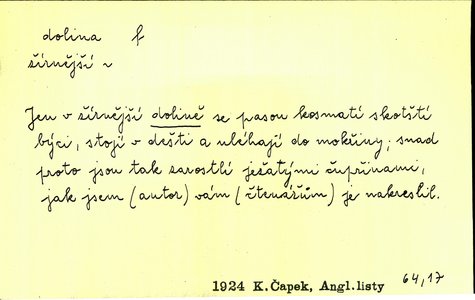 dolina f
šírnější ~
Jen v šírnější dolině se pasou kosmatí skotští
býci, stojí v dešti a uléhají do mokřiny; snad
proto jsou tak zarostlí ježatými čupřinami,
jak jsem (autor) vám (čtenářům) je nakreslil.
1924 K.Čapek, Angl.listy 64,17